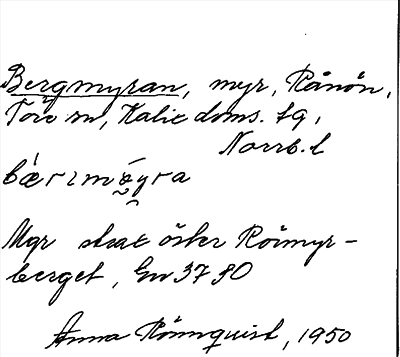 Bergmyran, myr, Rånön,
Töre sn, Kalix doms. sg,
Norrb. l
Myr strax öster Römyr-
berget, Gv 37 80
Anna Rönnquist, 1950